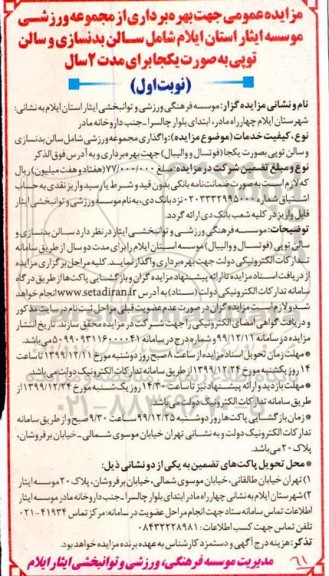 مزایده عمومی جهت بهره برداری از مجموعه ورزشی
موسسه ایثار استان ایلام شامل سالن بدنسازی و سالن
توپی به صورت یکجا برای مدت ۲ سال
(نوبت اول)
نام و نشانی مزایده گزار: موسسه فرهنگی ورزشی و توانبخشی ایثار استان ایلام به نشانی:
شهرستان ایلام چهارراه مادر، ابتدای بلوار چالسرا-جنب داروخانه مادر
نوع، کیفیت خدمات (موضوع مزایده): واگذاری مجموعه ورزشی شامل سالن بدنسازی
و سالن توپی بصورت یکجا (فوتسال و والیبال) جهت بهره برداری و به آدرس فوق الذکر
نوع و مبلغ تضمین شرکت در مزایده: مبلغ ۷۷/۰۰۰/۰۰۰ (هفتاد و هفت میلیون) ریال
که لازم است به صورت ضمانت نامه بانکی بدون قید و شرط یا رسید واریز نقدی به حساب
نزد بانک دی، به نام موسسه ورزشی و توانبخشی ایثار
قابل واریز در کلیه شعب بانک دی ارائه گردد.
توضیحات: موسسه فرهنگی ورزشی و توانبخشی ایثار در نظر دارد سالن بدنسازی و
سالن توپی (فوتسال و والیبال) موسسه استان ایلام را برای مدت دو سال از طریق سامانه
تدارکات الکترونیکی دولت جهت بهره برداری واگذار نمایند. کلیه مراحل برگزاری مزایده
از دریافت اسناد مزایده تا ارائه پیشنهاد مزایده گران و بازگشایی پاکت ها از طریق درگاه
سامانه تدارکات الکترونیکی دولت (ستاد) به آدرس www.setadiran.ir انجام خواهد
شد و لازم است مزایده گران در صورت عدم عضویت قبلی مراحل ثبت نام در سایت مذکور
و دریافت گواهی امضای الکترونیکی را جهت شرکت در مزایده محقق سازند. تاریخ انتشار
در سامانه ۹۹/۱۲/۱۱ و شماره درج در سامانه ۵۰۹۹۰۹۳۱۱۶۰۰۰۰۴۱ می باشد.
• مهلت زمان تحویل اسناد مزایده از ساعت ۸ صبح روز دوشنبه مورخ ۱۳۹۹/۱۲/۱۱ تا ساعت
۱۴ روز یکشنبه مورخ ۱۳۹۹/۱۲/ از طریق سامانه تدارکات الکترونیک دولت می باشد.
• مهلت بازدید و ارائه پیشنهاد نیز تا ساعت ۱۴/۳۰ روز یکشنبه مورخ ۱۳۹۹/۱۲/۲۴ از
طریق سامانه تدارکات الکترونیک دولت می باشد.
• زمان بازگشایی پاکت ها روز دوشنبه ۹۹/۱۲/۲۵ ساعت ۹/۳۰ صبح و از طریق سامانه
تدارکات الکترونیک دولت و به نشانی تهران خیابان موسوی شمالی- خیابان برفروشان،
پلاک ۲۰ می باشد.
• محل تحویل پاکت های تضمین به یکی از دو نشانی ذیل:
۱) تهران خیابان طالقانی، خیابان موسوی شمالی، خیابان برفروشان، پلاک ۲۰ موسسه ایثار
۲) شهرستان ایلام به نشانی چهارراه مادر، ابتدای بلوار چالسرا-جنب داروخانه مادر موسسه ایثار
اطلاعات تماس سامانه ستاد جهت انجام مراحل عضویت در سامانه: مرکز تماس ۴۱۹۳۴-۰۲۱
تلفن تماس جهت کسب اطلاعات: ۰۸۴۳۲۲۲۸۹۸۱
تذکر: هزینه درج آگهی و دستمزد کارشناس به عهده برنده مزایده خواهد بود.
مدیریت موسسه فرهنگی، ورزشی و توانبخشی ایثار ایلام